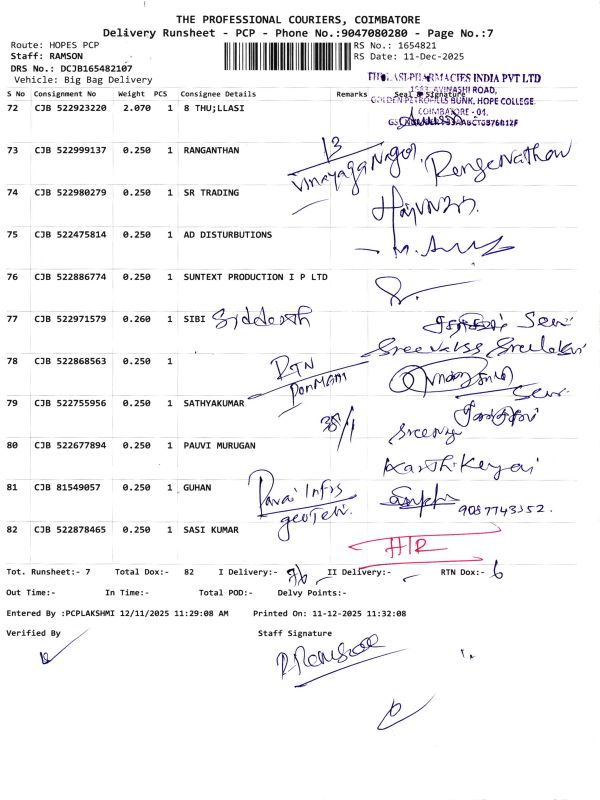 THE PROFESSIONAL COURIERS, COIMBATORE
Delivery Runsheet - PCP - Phone No.:9047080280 - Page No.:7
Route: HOPES PCP RS No.: 1654821
Staff: RAMSON RS Date: 11-Dec-2025
DRS No.: DCJB165482107
Vehicle: Big Bag Delivery
PHARMACIES INDIA PVT LTD
AVINASHI ROAD,
BUNK, HOPE COLLEGE.
COIMBATORE - 04.
S No Consignment No Weight PCS Consignee Details Remarks Seal & Signature
72 CJB 522923220 2.070 1 8 THU;LLASI
73 CJB 522999137 0.250 1 RANGANTHAN 13 Vinayaga Nagar, Renganathan
74 CJB 522980279 0.250 1 SR TRADING
75 CJB 522475814 0.250 1 AD DISTURBUTIONS
76 CJB 522886774 0.250 1 SUNTEXT PRODUCTION I P LTD
77 CJB 522971579 0.260 1 SIBI Siddarth
78 CJB 522868563 0.250 1 RTN
79 CJB 522755956 0.250 1 SATHYAKUMAR
80 CJB 522677894 0.250 1 PAUVI MURUGAN
81 CJB 81549057 0.250 1 GUHAN 9087743352.
82 CJB 522878465 0.250 1 SASI KUMAR H/R
Tot. Runsheet:- 7 Total Dox:- 82 I Delivery:- 76 II Delivery:- RTN Dox:- 6
Out Time:- In Time:- Total POD:- Delvy Points:-
Entered By :PCPLAKSHMI 12/11/2025 11:29:08 AM Printed On: 11-12-2025 11:32:08
Verified By Staff Signature